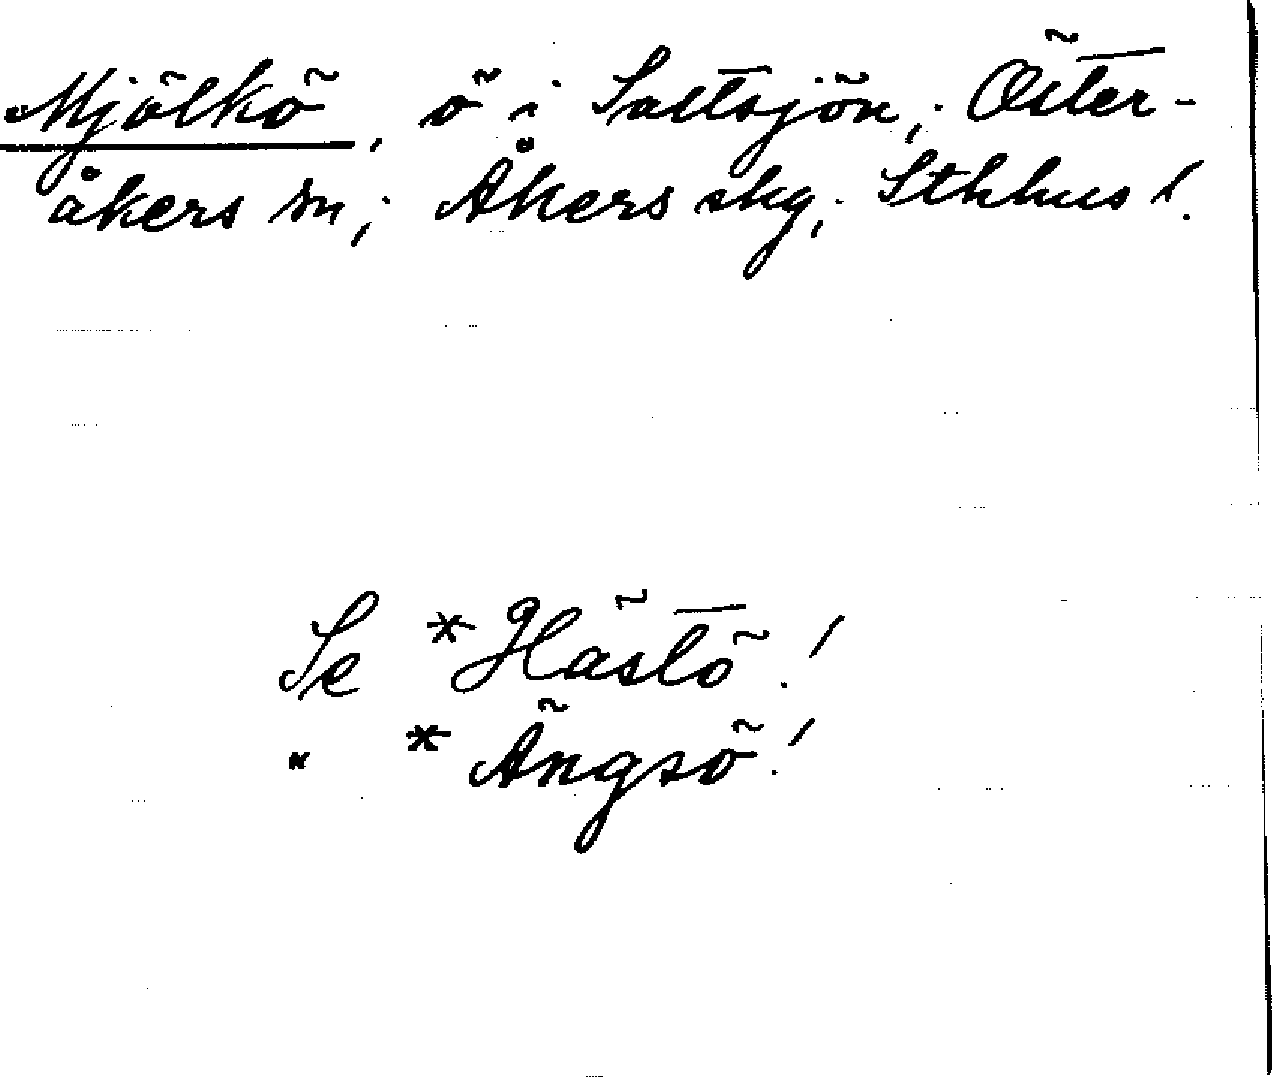 Mjölkö, ö i Saltsjön; Öster-
åkers sn; Åkers skg; Sthhus l.
Se *Hästö!
" *Ängsö!